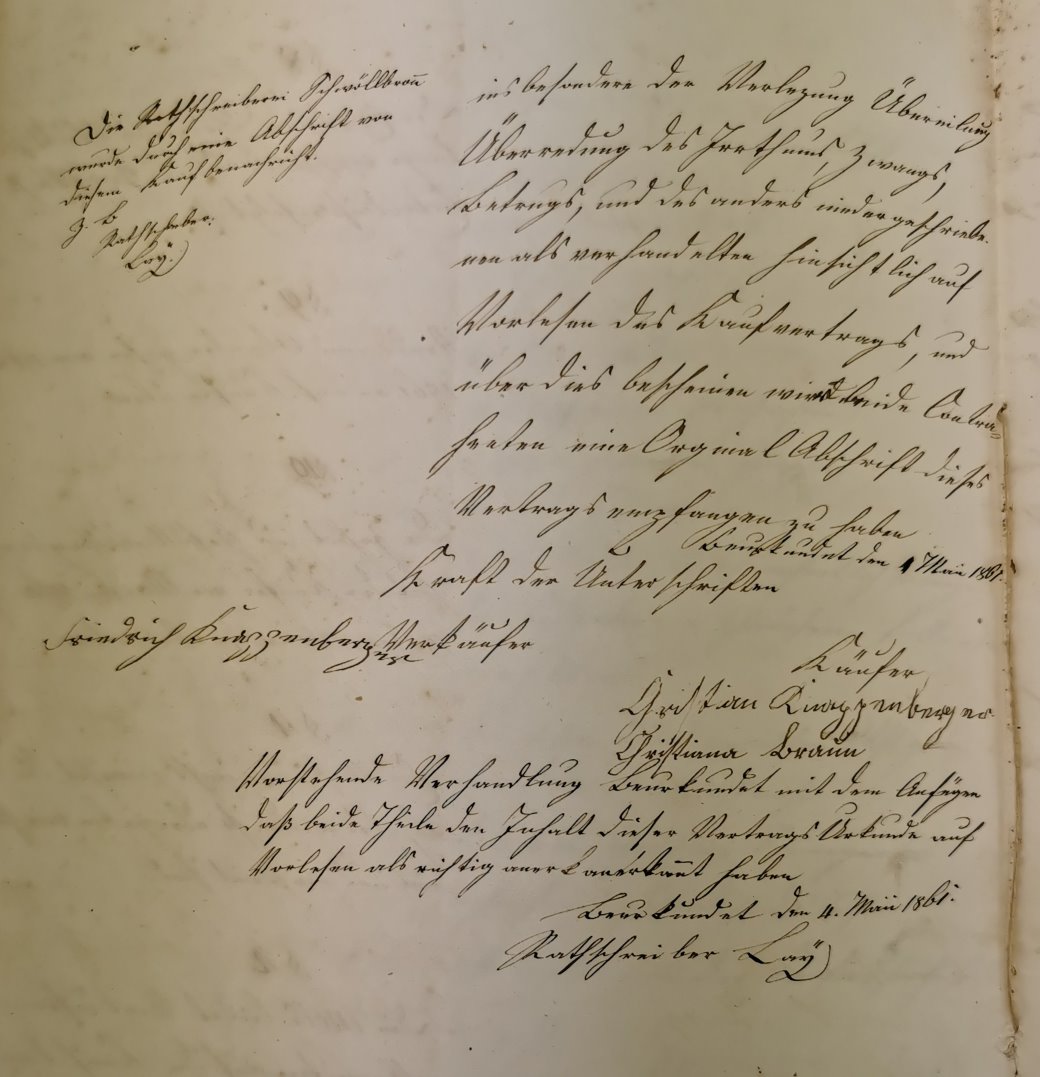 Die Rathschreiberei Schwöllbronn
wurde durch eine Abschrift von
diesem Kauf benachricht.
z. B
Rathschreiber:
Lay.)
insbesondere der Verlezung Übereilung
Überredung des Irrthums, Zwangs,
Betrugs, und des anders niedergeschriebe-
nen als verhandelten hinsichtlich auf
Vorlesen des Kaufvertrags, und
über dies bescheinen wir beide Contra=
henten eine Orginal Abschrift dieses
Vertrags empfangen zu haben
Beurkundet den 4 Maii 1861.
Kraft der Unterschriften
Friedrich Knappenberger Verkäufer
Käufer
Christian Knappenberger
Christiana Braun
Vorstehende Verhandlung Beurkundet mit dem Anfügen
daß beide Theile den Inhalt dieser Vertrags Urkunde auf
Vorlesen als richtig anerkanerkannt haben
Beurkundet den 4. Maii 1861.
Rathschreiber Laÿ)